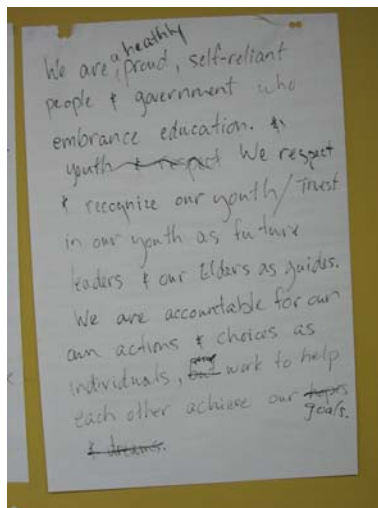 We are a healthy proud, self-reliant
people & government who
embrance education. &
youth & respect We respect
& recognize our youth/Trust
in our youth as future
leaders & our Elders as guides.
We are accountable for our
own actions & choices as
individuals, but work to help
each other achieve our hopes goals.
& dreams.